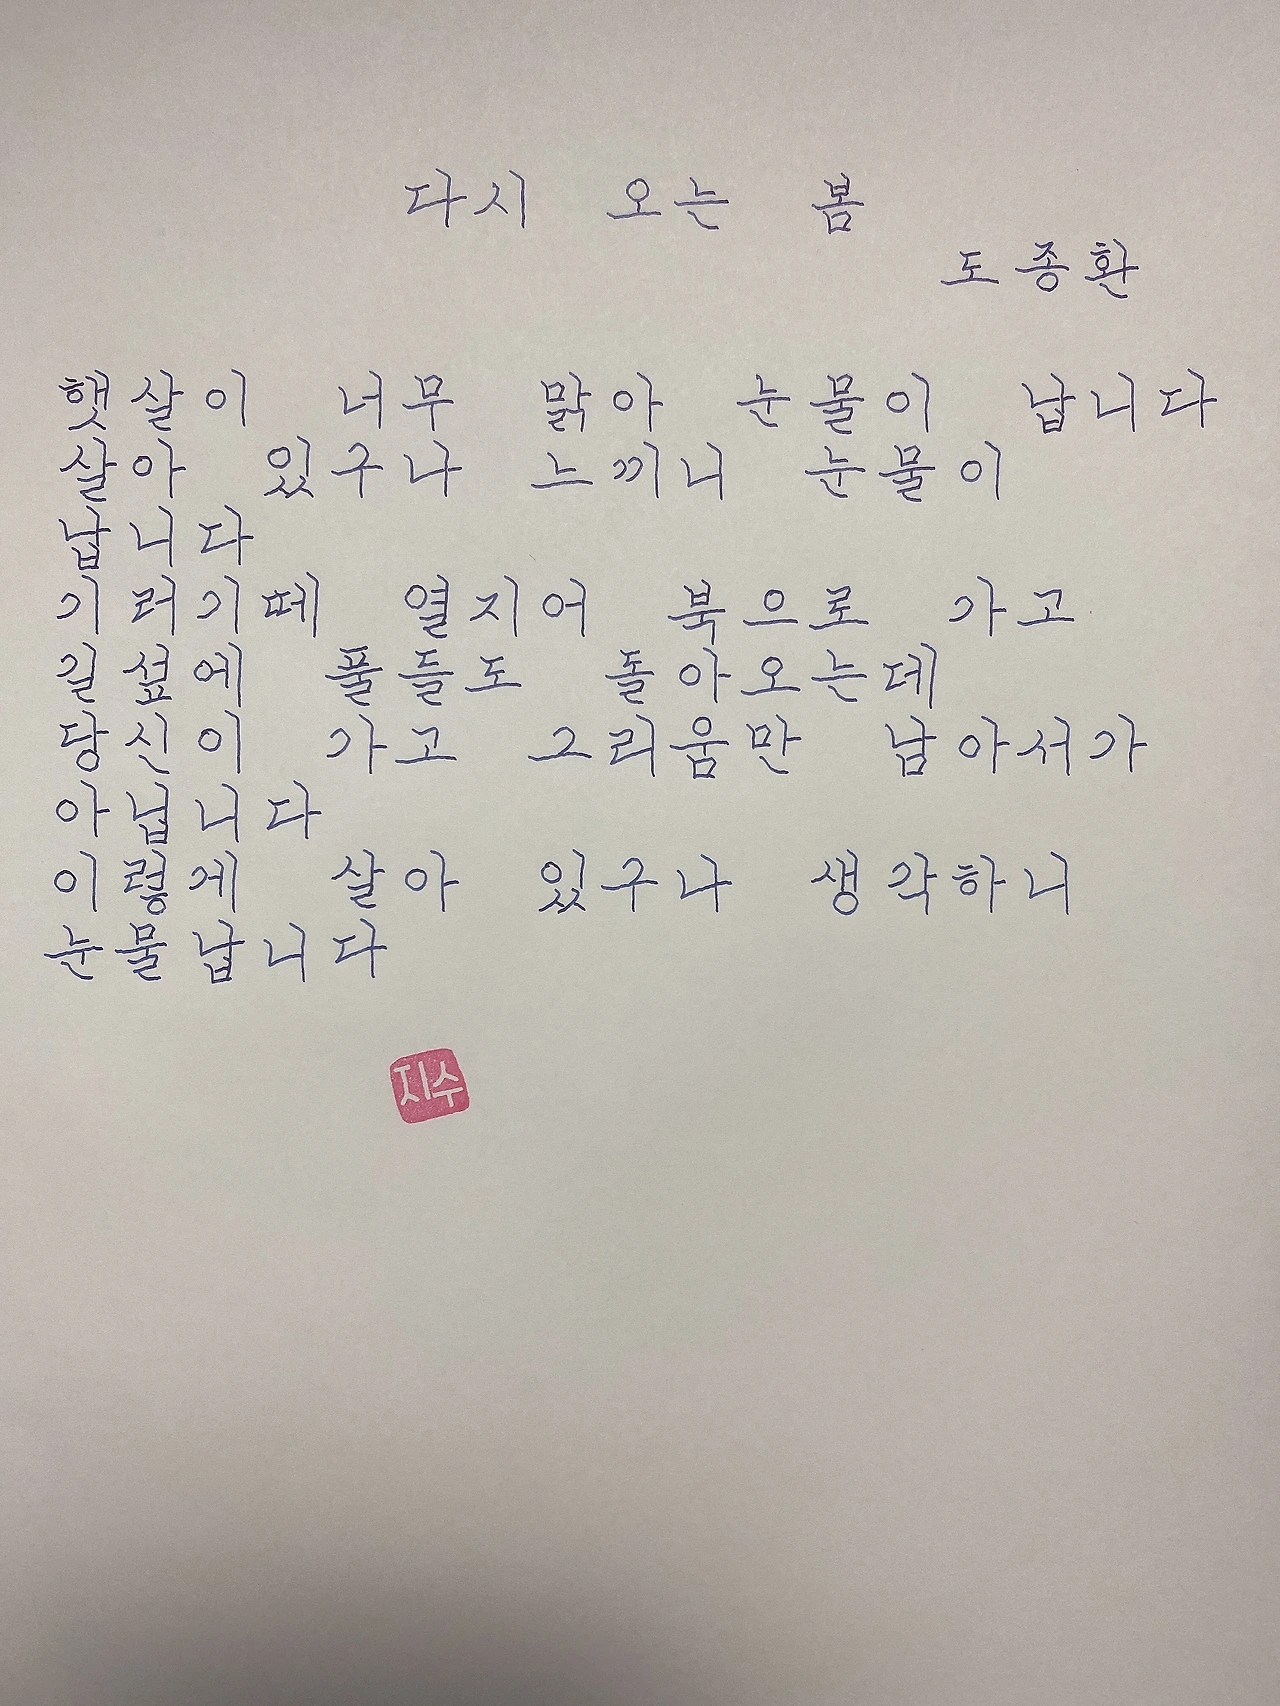 다시 오는 봄
도종환
햇살이 너무 맑아 눈물이 납니다
살아 있구나 느끼니 눈물이
납니다
기러기떼 열지어 북으로 가고
길섶에 풀들도 돌아오는데
당신이 가고 그리움만 남아서가
아닙니다
이렇게 살아 있구나 생각하니
눈물납니다
지수